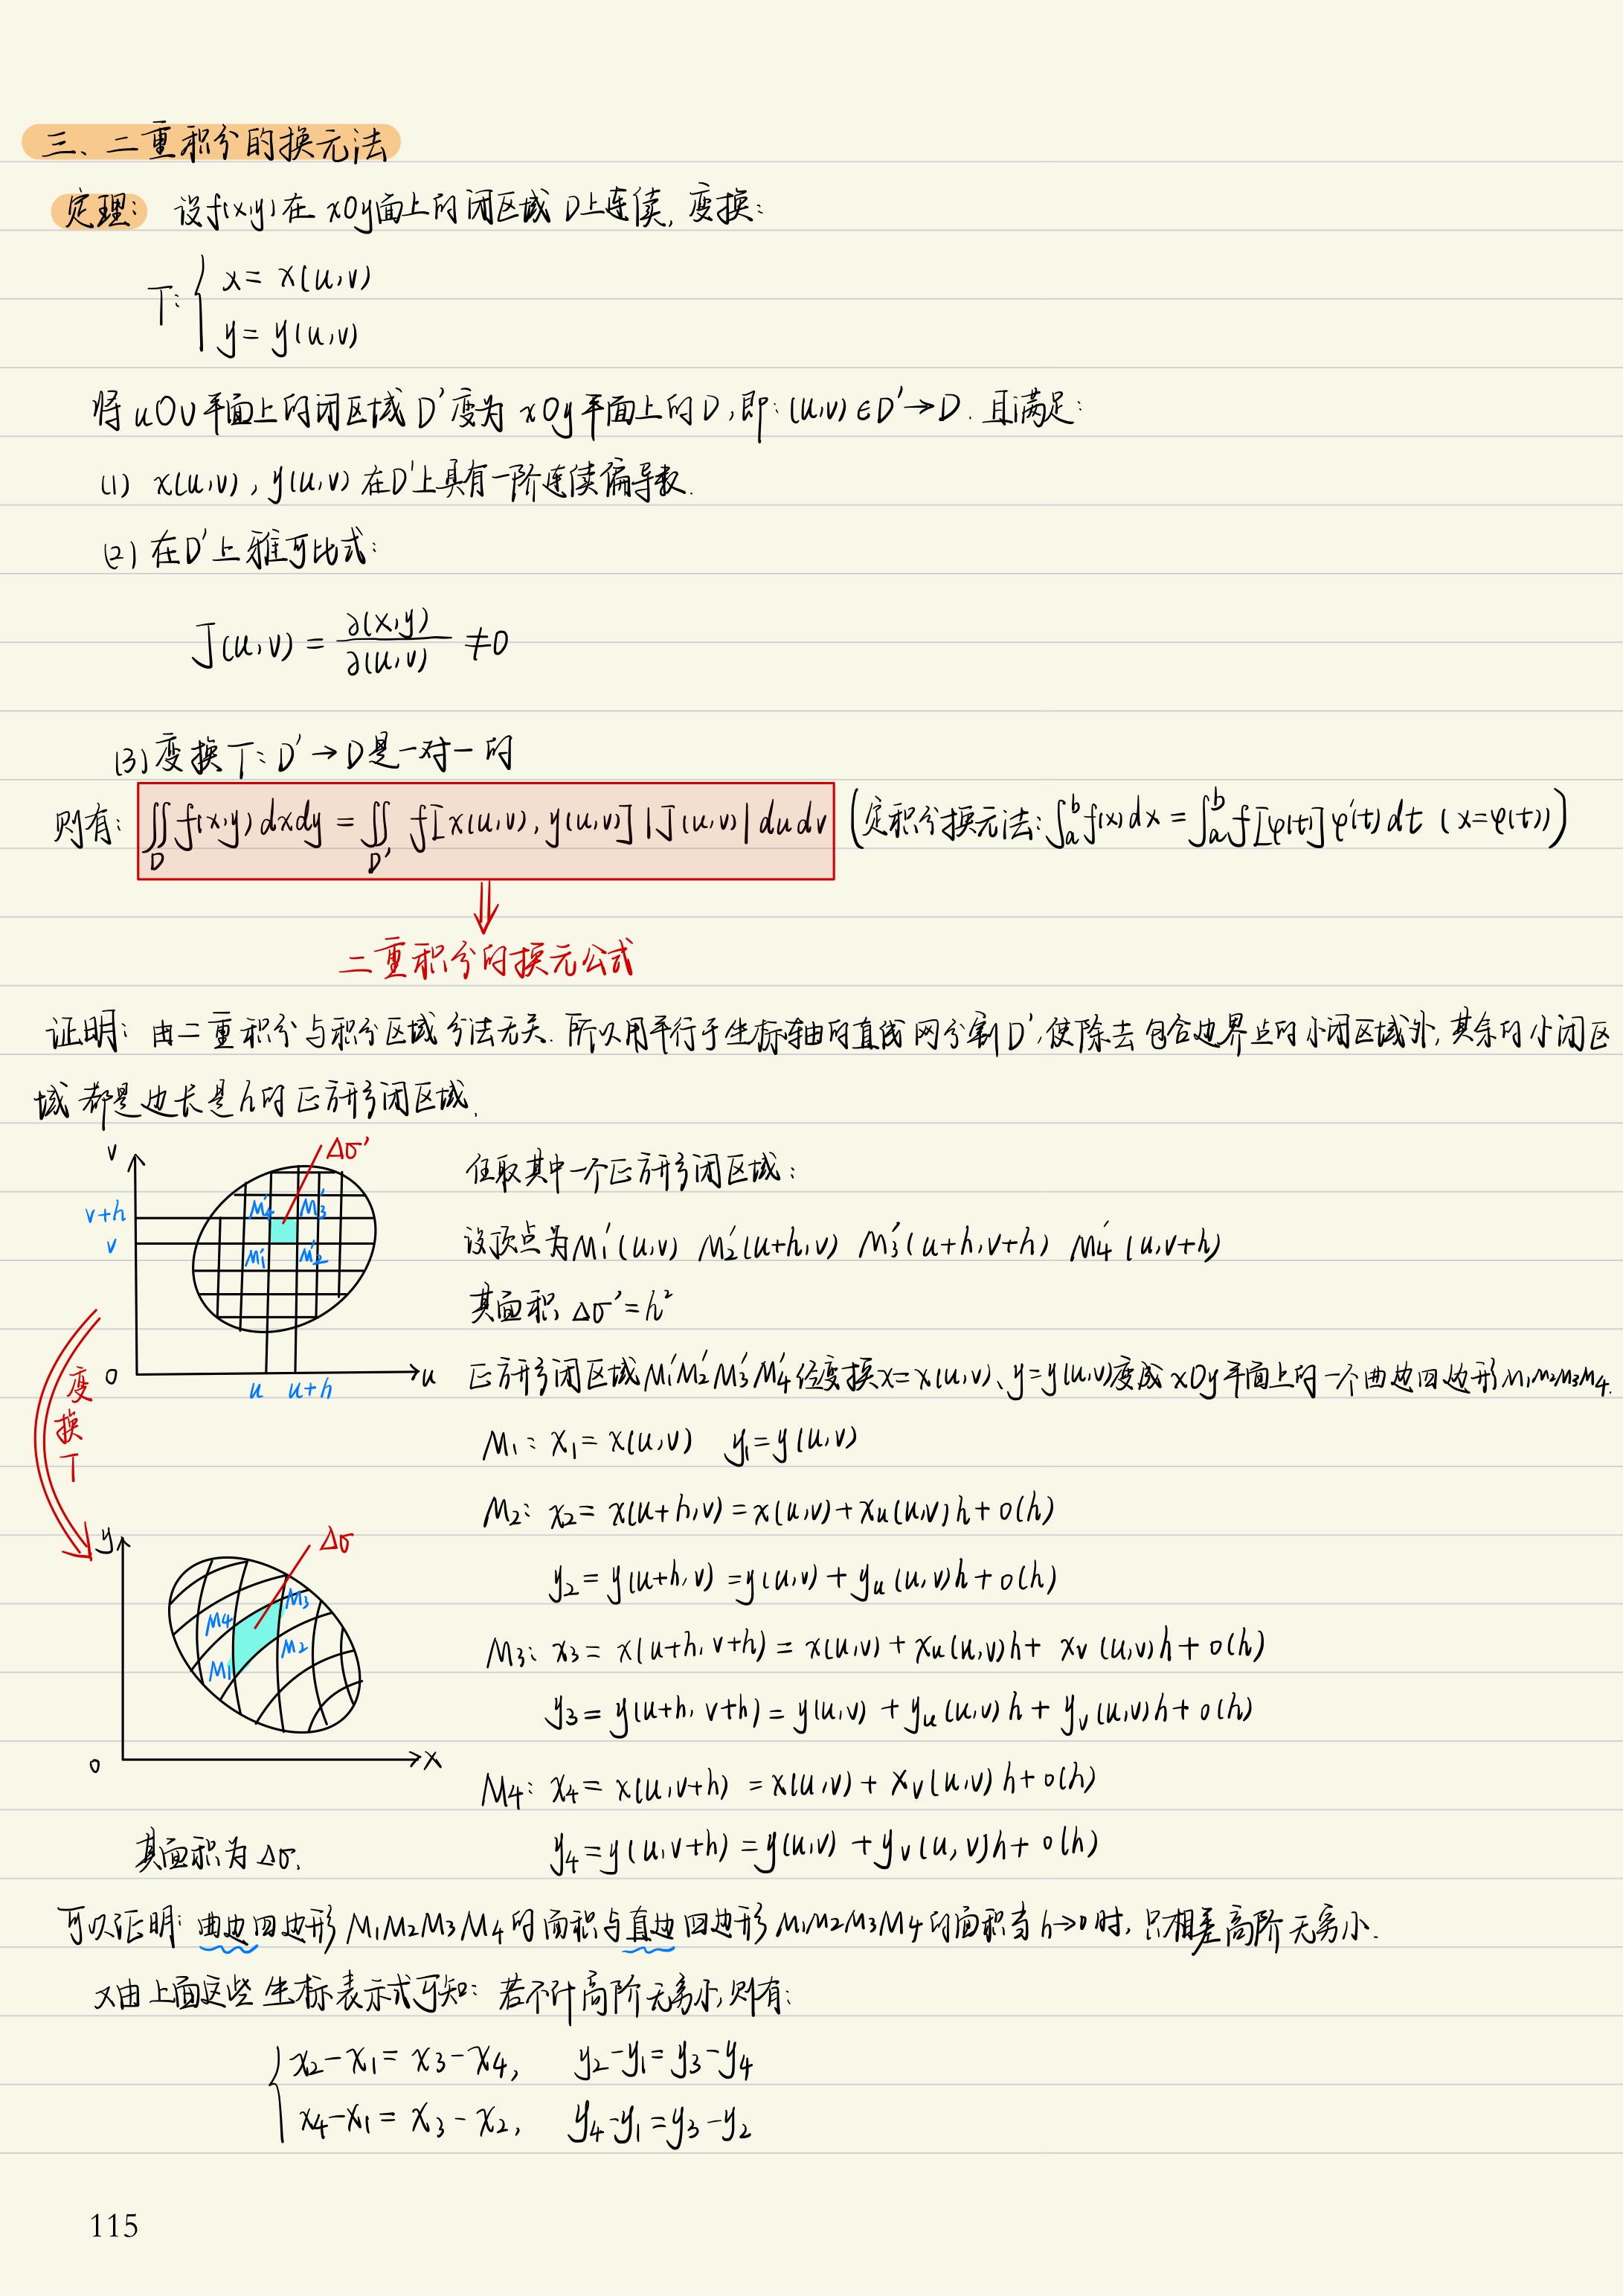 三、二重积分的换元法
定理: 设f(x,y)在 xOy面上的闭区域 D上连续, 变换:
T: { x = x(u,v)
y = y(u,v)
将 uOv 平面上的闭区域 D′变为 xOy平面上的D, 即: (u,v)∈D′→D. 且满足:
(1) x(u,v), y(u,v) 在D′上具有一阶连续偏导数.
(2) 在D′上雅可比式:
J(u,v) = ∂(x,y)/∂(u,v) ≠0
(3) 变换 T: D′→D是一对一的
则有: ∬_D f(x,y)dxdy = ∬_D′ f[x(u,v), y(u,v)] |J(u,v)| du dv (定积分换元法: ∫_a^b f(x)dx = ∫_a^b f[φ(t)]φ′(t)dt (x=φ(t)))
⇓
二重积分的换元公式
证明: 由二重积分与积分区域分法无关. 所以用平行于坐标轴的直线网分割D′, 使除去包含边界点的小闭区域外, 其余的小闭区
域都是边长是h的正方形闭区域.
v
Δσ′
v+h
v
M4′ M3′
M1′ M2′
0
u
u u+h
任取其中一个正方形闭区域:
设顶点为M1′(u,v) M2′(u+h,v) M3′(u+h,v+h) M4′(u,v+h)
其面积 Δσ′=h²
正方形闭区域M1′M2′M3′M4′经变换x=x(u,v)、y=y(u,v)变成 xOy平面上的一个曲边四边形M1M2M3M4.
变换T
M1: x1=x(u,v) y1=y(u,v)
M2: x2= x(u+h,v) = x(u,v)+xu(u,v)h+o(h)
y2=y(u+h,v) =y(u,v)+yu(u,v)h+o(h)
M3: x3= x(u+h, v+h) = x(u,v)+xu(u,v)h+ xv(u,v)h+o(h)
y3= y(u+h, v+h) = y(u,v) +yu(u,v)h+ yv(u,v)h+o(h)
M4: x4= x(u,v+h) = x(u,v)+ xv(u,v)h+o(h)
y4=y(u,v+h) =y(u,v) +yv(u,v)h+ o(h)
y
Δσ
M4 M3
M1 M2
0
x
其面积为Δσ.
可以证明: 曲边四边形M1M2M3M4的面积与直边四边形M1M2M3M4的面积当h→0时, 只相差高阶无穷小.
又由上面这些坐标表示式可知: 若不计高阶无穷小, 则有:
{ x2-x1= x3-x4, y2-y1=y3-y4
x4-x1= x3-x2, y4-y1=y3-y2
115